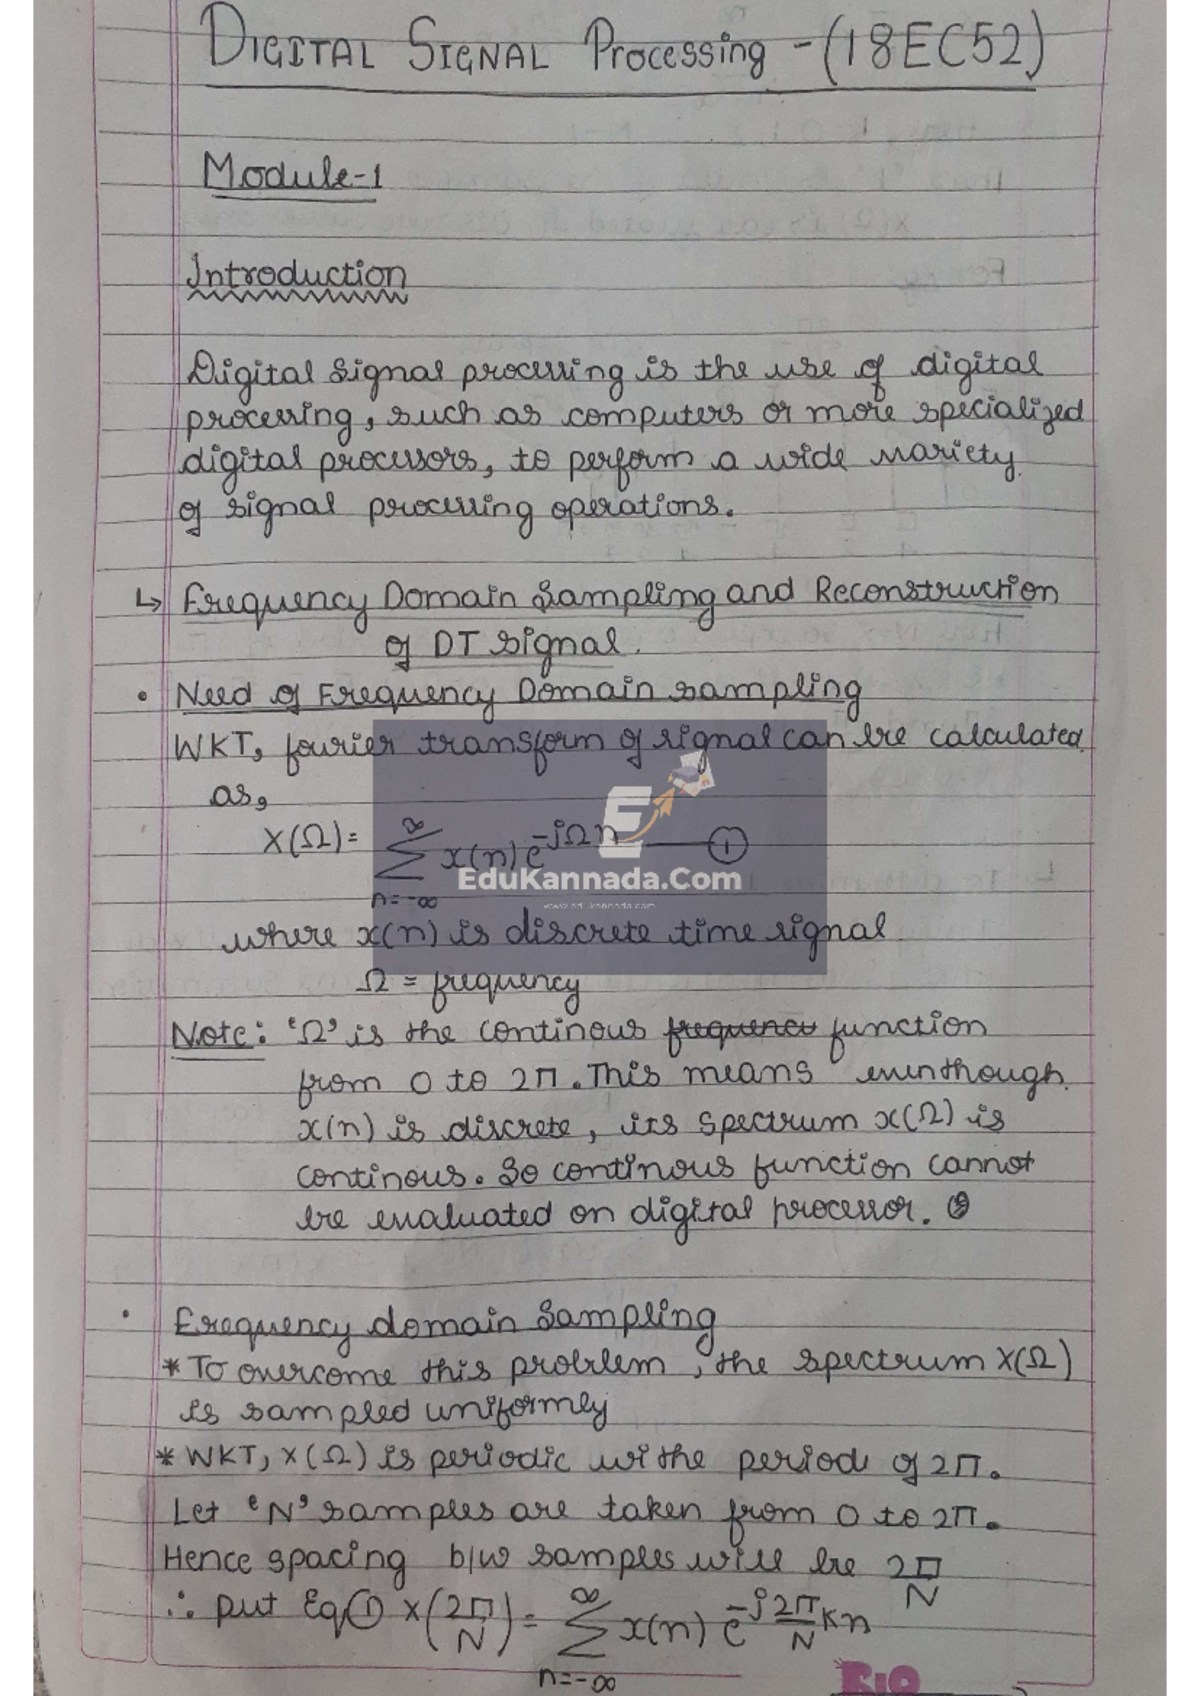 DIGITAL SIGNAL Processing - (18EC52)
Module-1
Introduction
Digital Signal processing is the use of digital
processing, such as computers or more specialized
digital processors, to perform a wide variety
of signal processing operations.
↳ Frequency Domain Sampling and Reconstruction
of DT signal.
• Need of Frequency Domain sampling
WKT, fourier transform of signal can be calculated
as,
X(Ω) = ∞∑n=-∞ x(n) e^-jΩn —— ①
EduKannada.Com
where x(n) is discrete time signal
Ω = frequency
Note: 'Ω' is the continous frequency function
from 0 to 2π. This means eventhough
x(n) is discrete, its spectrum x(Ω) is
continous. So continous function cannot
be evaluated on digital processor.
• Frequency domain Sampling
* To overcome this problem, the spectrum X(Ω)
is sampled uniformly
* WKT, X(Ω) is periodic withe period of 2π.
Let 'N' samples are taken from 0 to 2π.
Hence spacing b/w samples will be 2π/N
∴ put Eq ① X(2π/N) = ∞∑n=-∞ x(n) e^-j2π/N kn